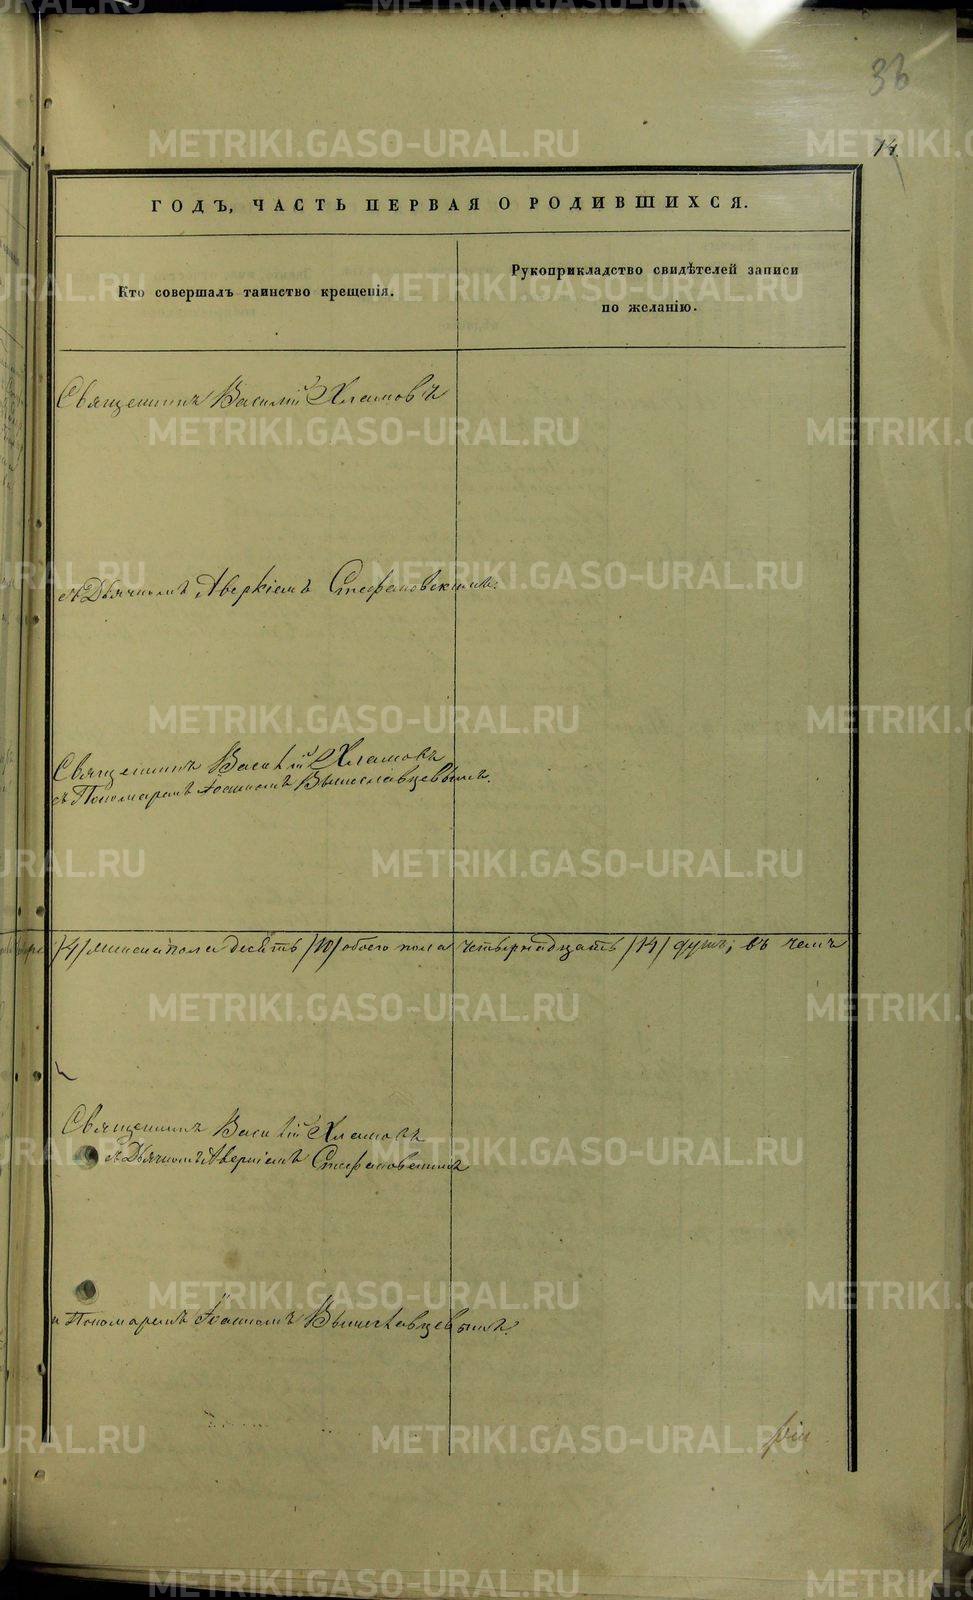 METRIKI.GASO-URAL.RU
36
14.
ГОДЪ, ЧАСТЬ ПЕРВАЯ О РОДИВШИХСЯ.
Кто совершалъ таинство крещенія.
Рукоприкладство свидѣтелей записи
по желанію.
Священникъ Василій Хламовъ
съ Дьячкомъ Аверкіемъ Стефановскимъ.
Священникъ Василій Хламовъ
съ Пономаремъ Іоанномъ Вышеславцевымъ.
/4/ женска пола десять /10/ обоего пола четырнадцать /14/ душъ; въ чемъ
Священникъ Василій Хламовъ
съ Дьячкомъ Аверкіемъ Стефановскимъ
и Пономаремъ Іоанномъ Вышеславцевымъ.